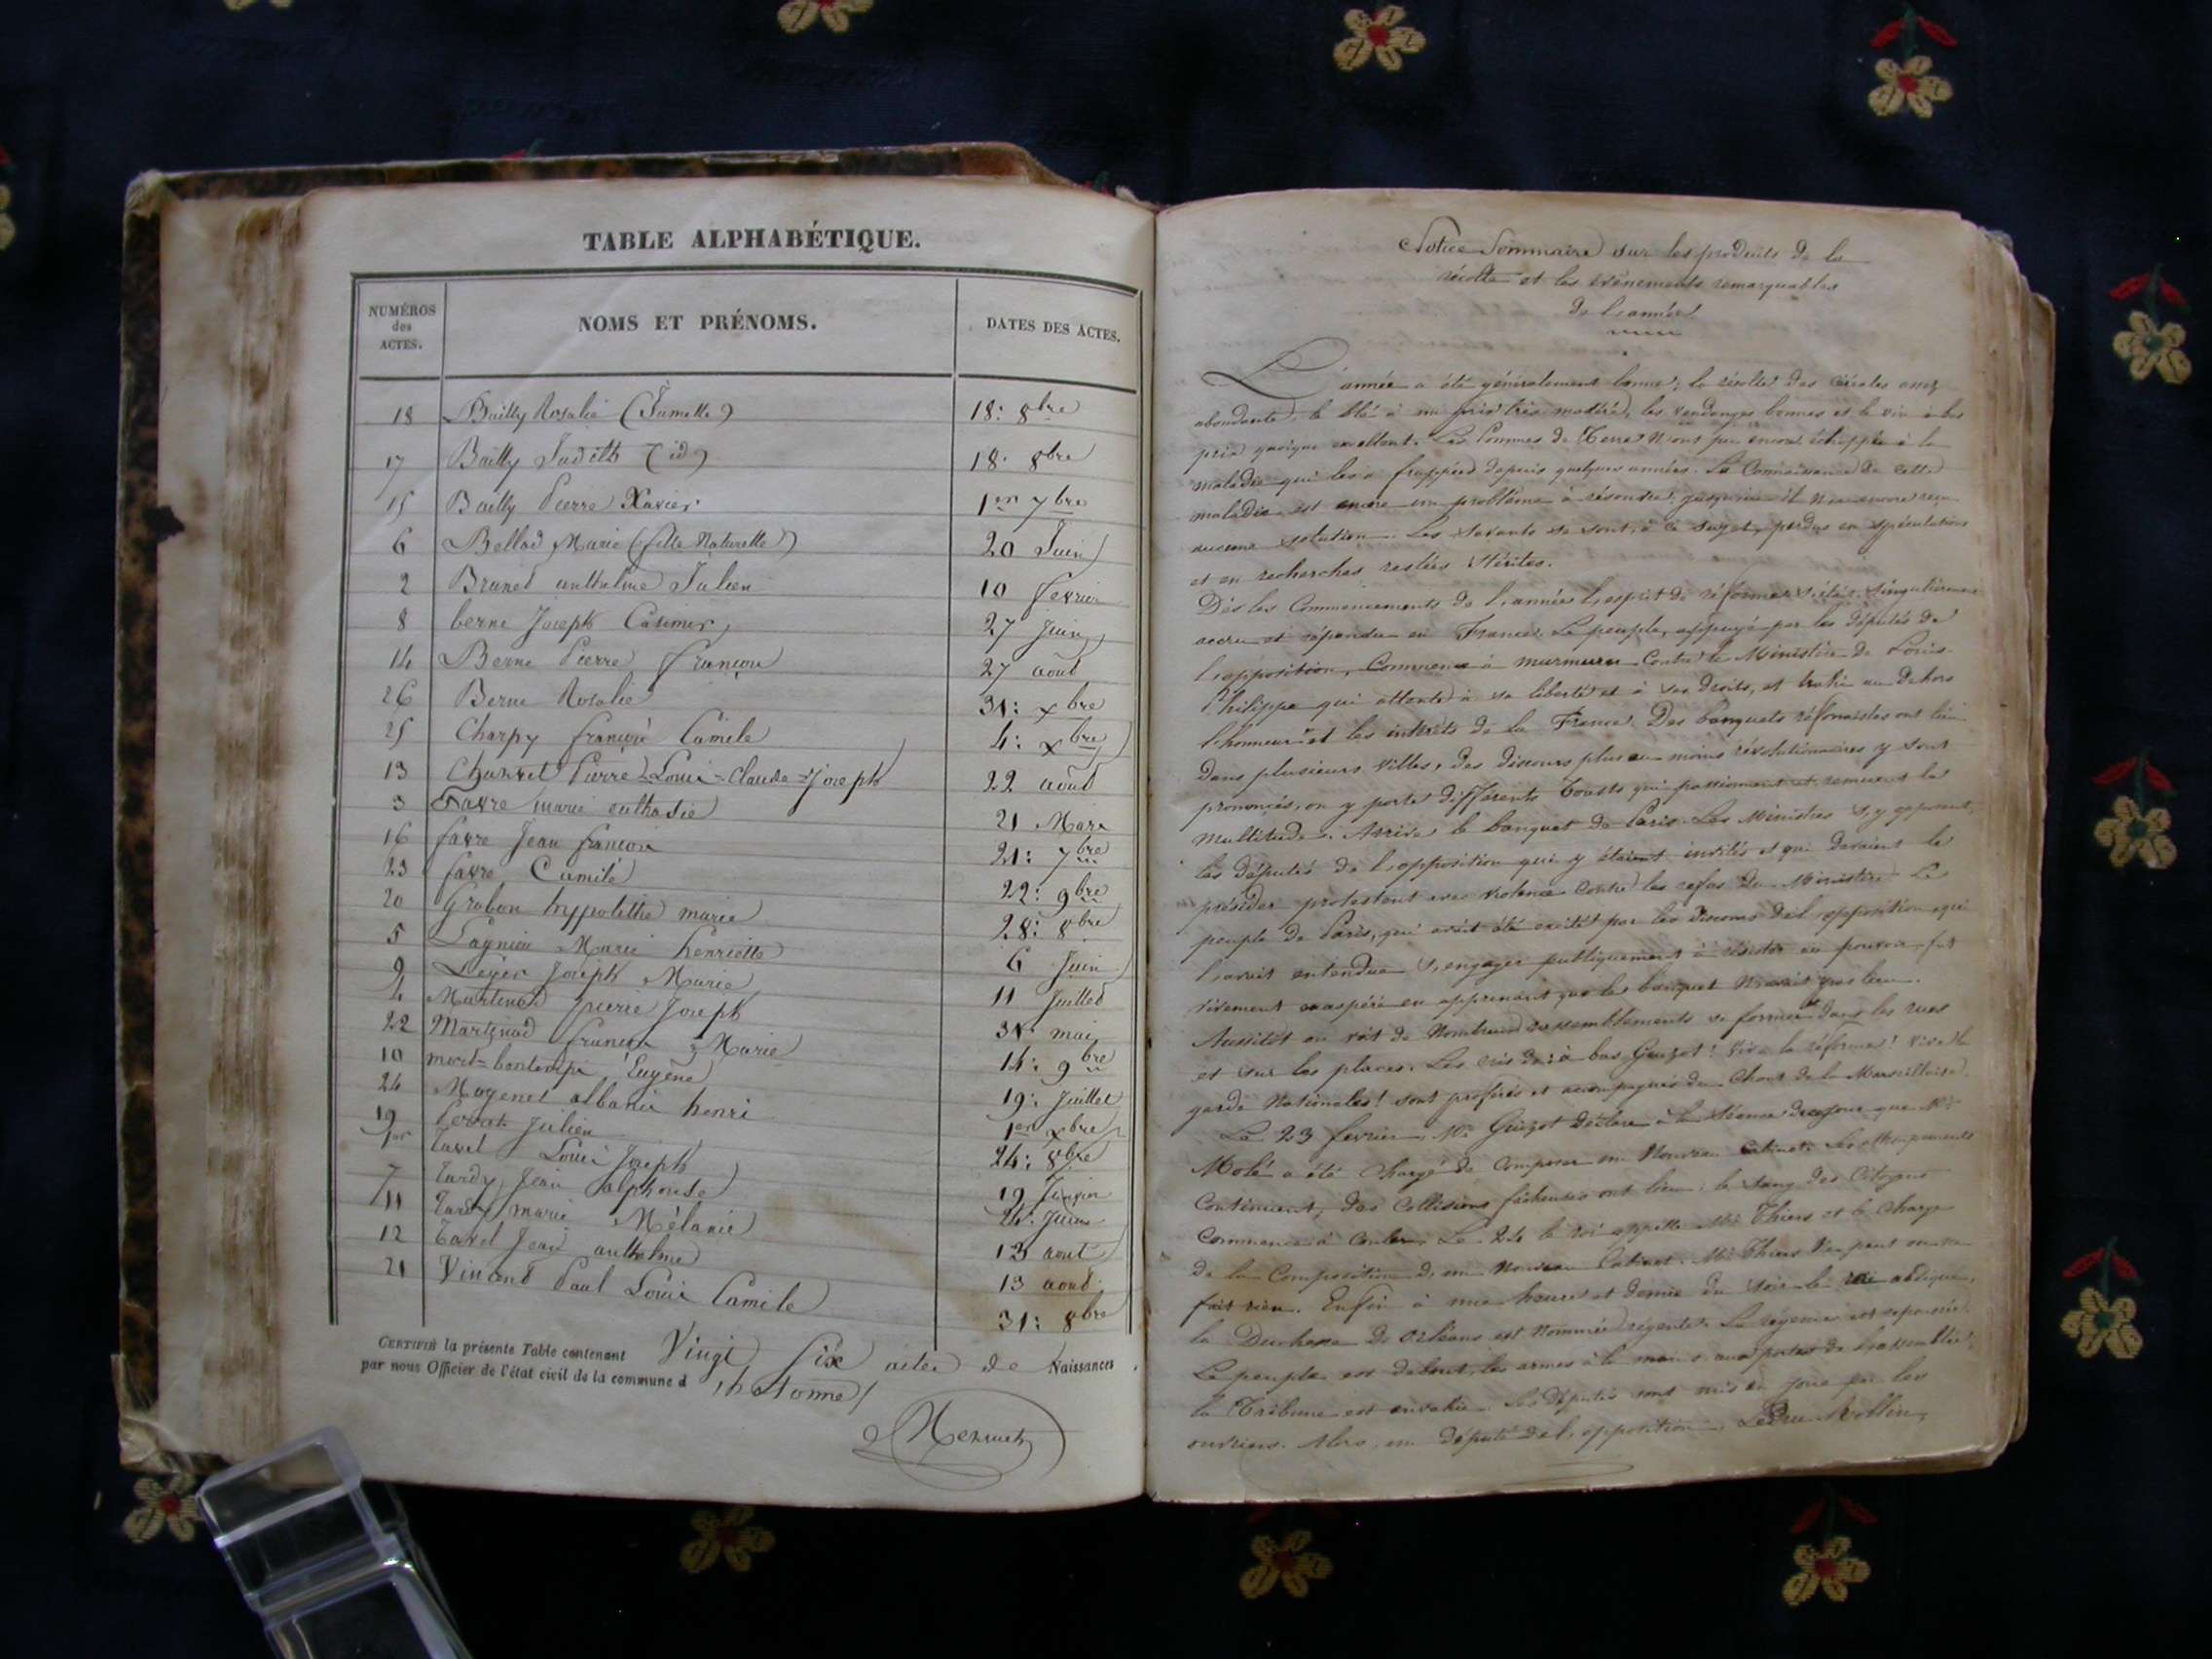 TABLE ALPHABÉTIQUE.
NUMÉROS des ACTES. NOMS ET PRÉNOMS. DATES DES ACTES.
18 Bailly Rosalie (Jumelle) 18: 8bre
17 Bailly Judith (id) 18: 8bre
15 Bailly Pierre Xavier 1er 7bre
6 Bellod Marie (fille Naturelle) 20 Juin
2 Brunet anthelme Julien 10 fevrier
8 berne Joseph Casimir 27 Juin
14 Berne Pierre françois 27 aout
26 Berne Rosalie 31: xbre
25 Charpy françois Camile 4: xbre
13 Charvet Pierre Louis = Claude = Joseph 22 aout
3 Favre marie 21 Mars
16 favre Jean françois 21: 7bre
23 favre Camile 22: 9bre
20 Grabon hyppolithe marie 28: 8bre
5 Lagnieu Marie henriette 6 Juin
9 Léger Joseph Marie 11 Juillet
4 Martinod pierre Joseph 31 mai
22 Martinod françois Marie 14: 9bre
10 Eugène 19: Juillet
24 Mogenet albanie henri 1er xbre
19 Julien 24: 8bre
1er Tavel Louis Joseph 19 Janvier
7 Tardy Jean alphonse 24: Juin
11 Tardy marie Mélanie 13 aout
12 Tavel Jean anthelme 13 aout
21 Vincent Paul Louis Camile 31: 8bre
CERTIFIÉ la présente Table contenant Vingt Six actes de Naissances
par nous Officier de l'état civil de la commune d
Notice Sommaire sur les produits de la
récolte et les évènements remarquables
de l'année
L'année a été généralement bonne; la récolte des céréales assez
abondante, le blé à un prix très modéré, les vendanges bonnes et le vin à bas
prix quoique excellent. Les Pommes de Terre N'ont pas encore échappées à la
maladie qui les a frappées depuis quelques années. La Connaissance de cette
maladie est encore un problème à résoudre. jusqu'ici il n'a encore reçu
aucune solution. Les Savants se sont, à ce sujet, perdus en spéculations
et en recherches restées stériles.
Dès les Commencements de l'année l'esprit de réforme s'était singulièrement
accru et répandu en France. Le peuple, appuyé par les députés de
l'opposition, Commence à murmurer Contre le Ministère de Louis
Philippe qui attente à sa liberté et à ses droits, et trahi au dehors
l'honneur et les intérêts de la France. Des banquets réformistes ont lieu
dans plusieurs Villes, des discours plus ou moins révolutionnaires y sont
prononcés, on y porte différents Toasts qui passionnent et remuent la
multitude. Arrive le banquet de Paris. Les Ministres s'y opposent,
les députés de l'opposition qui y étaient invités et qui devaient le
présider protestent avec violence Contre les refus du Ministère. Le
peuple de Paris, qui avait été excité par les discours de l'opposition, qui
l'avait entendue s'engager publiquement à résister au pouvoir, fut
vivement exaspéré en apprenant que le banquet N'avait pas lieu.
Aussitôt on voit de Nombreux rassemblements se former dans les rues
et sur les places. Les cris de: à bas Guizot! Vive la réforme! Vive la
garde Nationale! sont proférés et accompagnés du Chant de la Marseillaise.
Le 23 fevrier, Mr Guizot déclare à la Séance de ce jour que Mr
Molé a été Chargé de Composer un Nouveau Cabinet. Les attroupements
Continuent, des Collisions fâcheuses ont lieu: le sang des Citoyens
Commence à Couler. Le 24 le roi appelle Mr Thiers et le Charge
de la Composition d'un Nouveau Cabinet. Mr Thiers n'en peut ou ne
fait rien. Enfin à une heure et demie du soir le roi abdique,
la Duchesse de Orléans est Nommée régente. La régence est repoussée.
Le peuple est debout, les armes à la main aux portes de l'assemblée;
la Tribune est envahie. Les députés sont mis en joue par les
ouvriers. Alors, un député de l'opposition, Ledru Rollin,